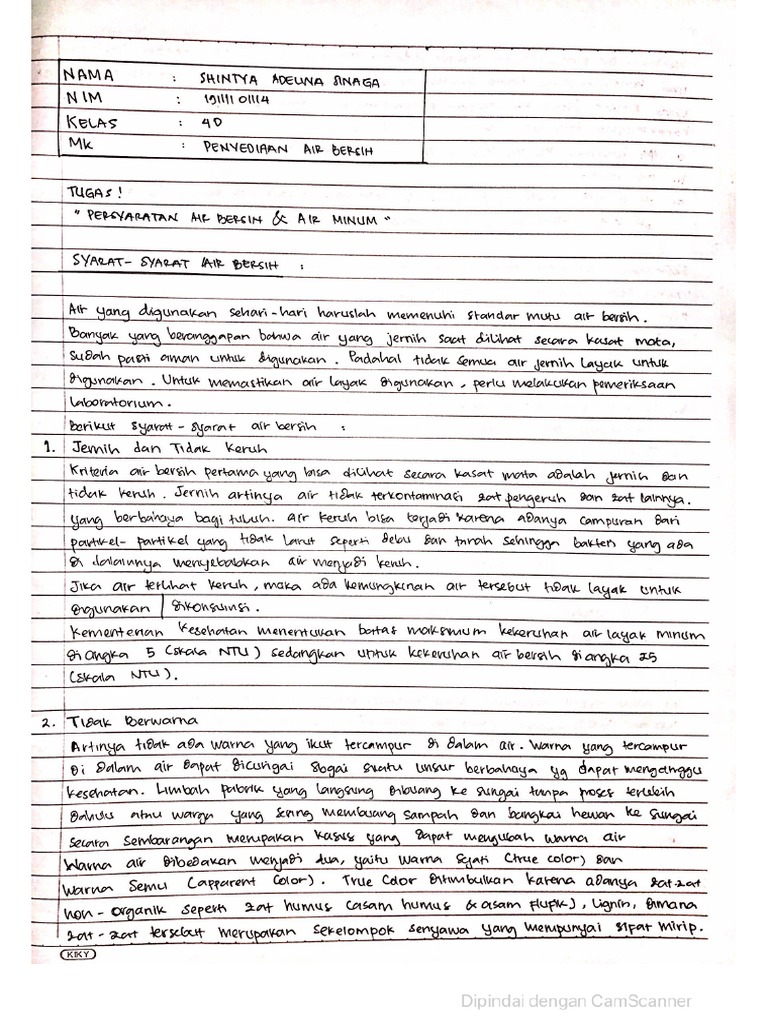 NAMA : SHINTYA ADELINA SINAGA
NIM : 1911101114
KELAS : 4D
MK : PENYEDIAAN AIR BERSIH
TUGAS!
" PERSYARATAN AIR BERSIH & AIR MINUM "
SYARAT- SYARAT AIR BERSIH :
Air yang digunakan sehari-hari haruslah memenuhi standar mutu air bersih.
Banyak yang beranggapan bahwa air yang jernih saat dilihat secara kasat mata,
sudah pasti aman untuk digunakan. Padahal tidak semua air jernih layak untuk
digunakan. Untuk memastikan air layak digunakan, perlu melakukan pemeriksaan
laboratorium.
Berikut syarat - syarat air bersih :
1. Jernih dan Tidak Keruh
Kriteria air bersih pertama yang bisa dilihat secara kasat mata adalah jernih dan
tidak keruh. Jernih artinya air tidak terkontaminasi zat pengeruh dan zat lainnya.
yang berbahaya bagi tubuh. air keruh bisa terjadi karena adanya campuran dari
partikel-partikel yang tidak larut seperti debu dan tanah sehingga bakteri yang ada
di dalamnya menyebabkan air menjadi keruh.
Jika air terlihat keruh, maka ada kemungkinan air tersebut tidak layak untuk
digunakan / dikonsumsi.
Kementerian Kesehatan menentukan batas maksimum kekeruhan air layak minum
di angka 5 (skala NTU) sedangkan untuk kekeruhan air bersih di angka 25
(skala NTU).
2. Tidak Berwarna
Artinya tidak ada warna yang ikut tercampur di dalam air. Warna yang tercampur
di dalam air dapat dicurigai sbgai suatu unsur berbahaya yg dapat mengganggu
kesehatan. Limbah pabrik yang langsung dibuang ke sungai tanpa proses terlebih
dahulu atau warga yang sering membuang sampah dan bangkai hewan ke sungai
secara sembarangan merupakan kasus yang dapat mengubah warna air
Warna air dibedakan menjadi dua, yaitu warna sejati (true color) dan
warna semu (apparent color). True Color ditimbulkan karena adanya zat-zat
non-organik seperti zat humus (asam humus & asam flupik), lignin, dimana
zat-zat tersebut merupakan sekelompok senyawa yang mempunyai sifat mirip.
KIKY
Dipindai dengan CamScanner